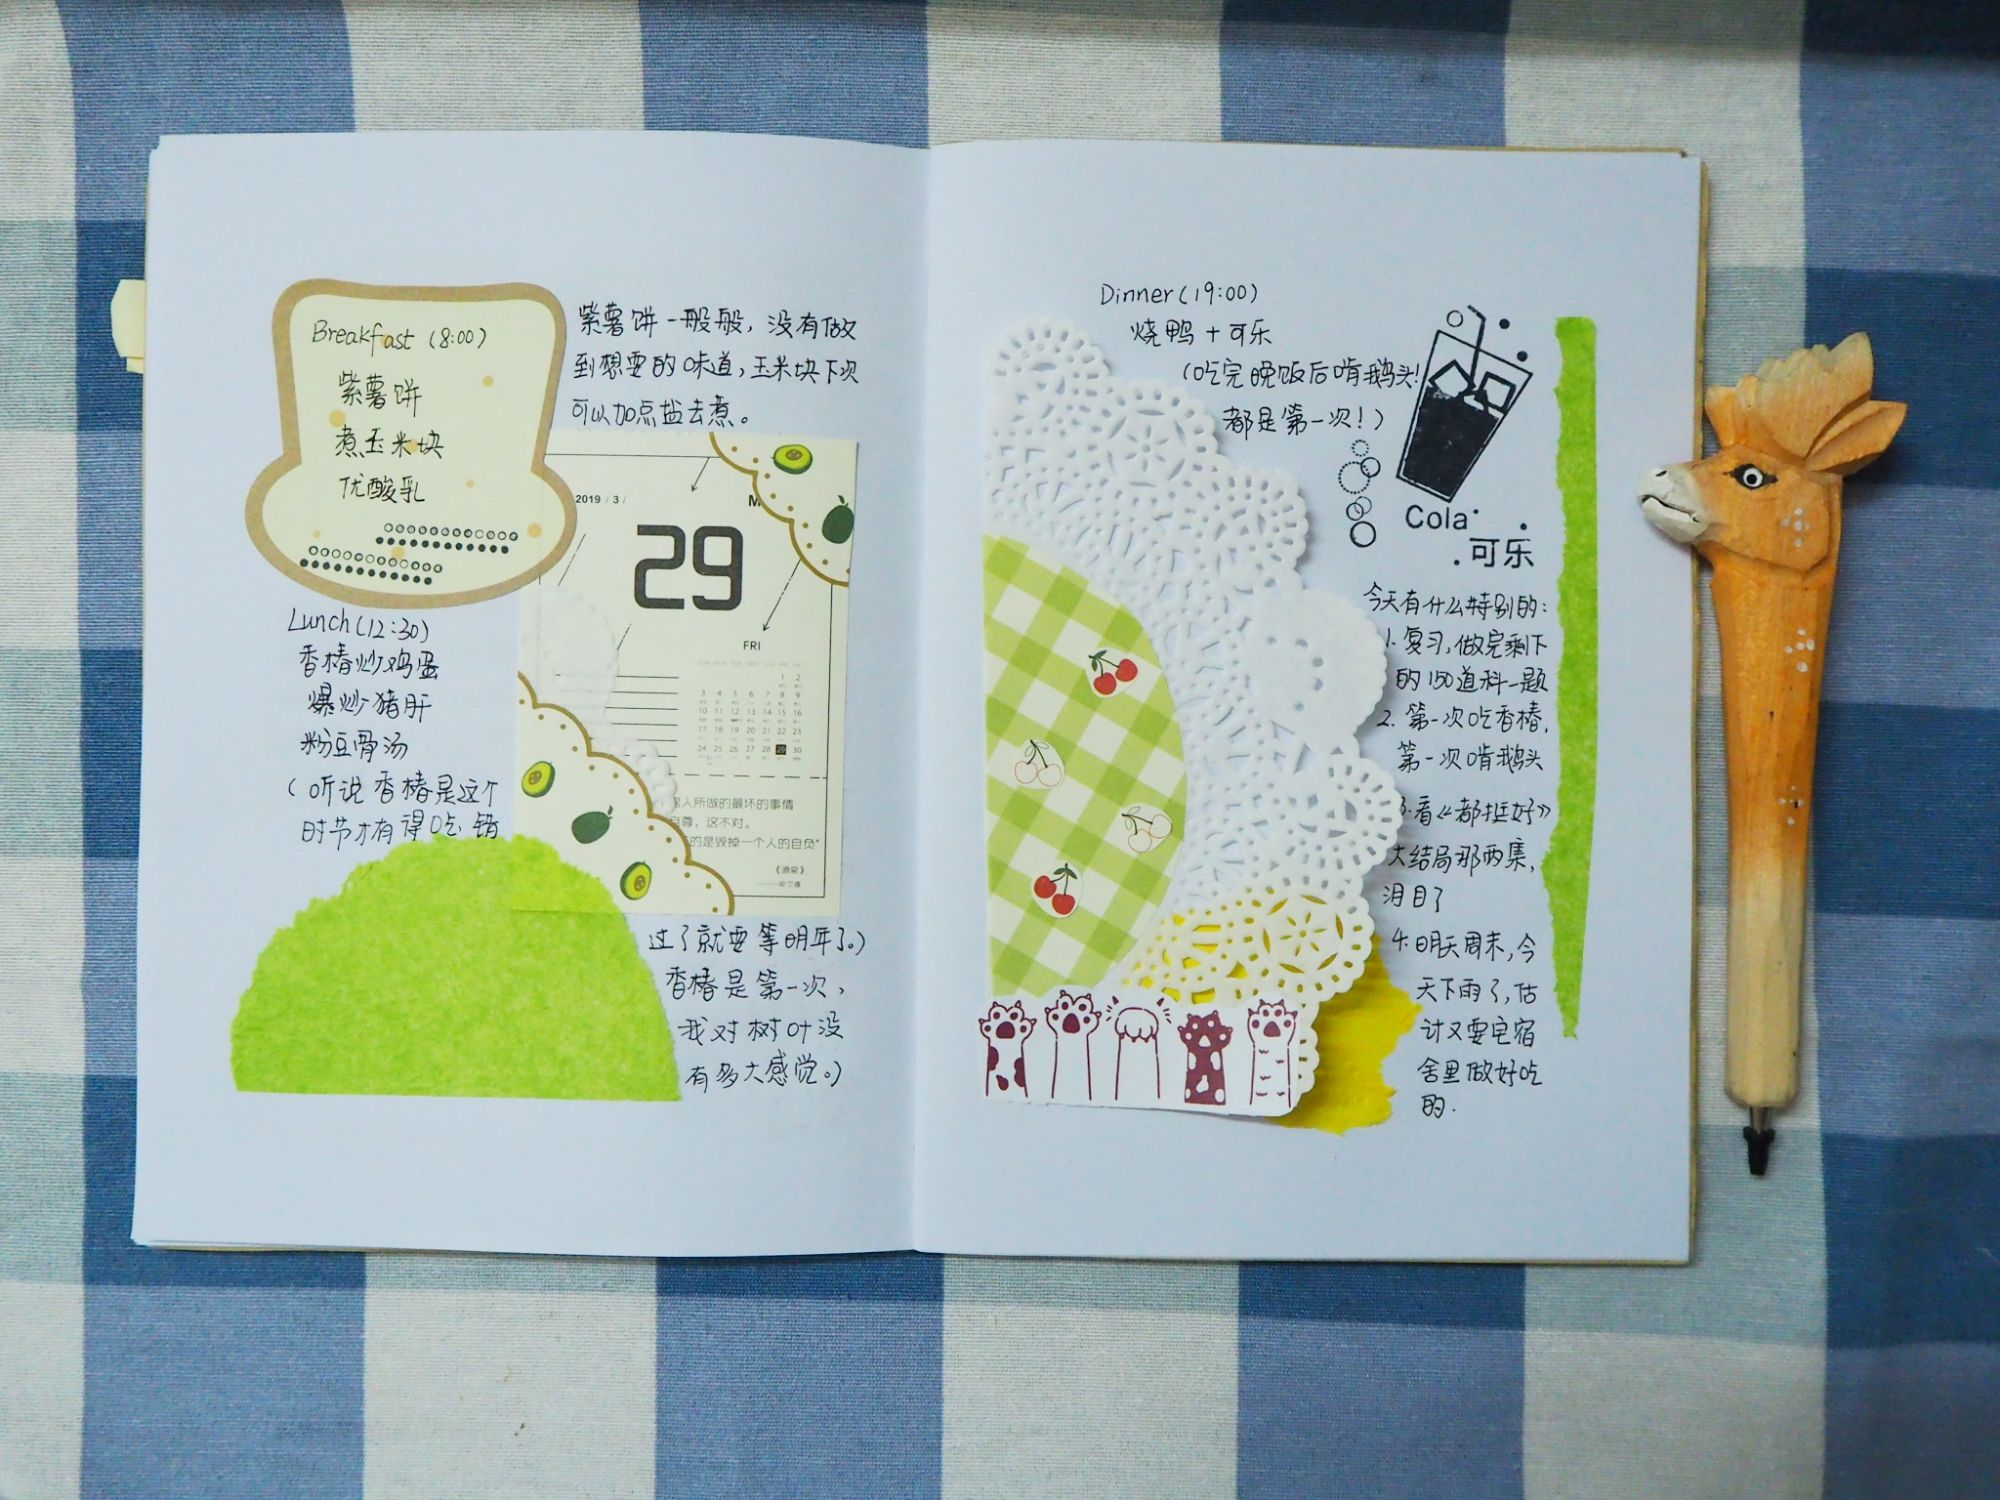 Breakfast (8:00)
紫薯饼
煮玉米块
优酸乳
紫薯饼一般般，没有做
到想要的味道，玉米块下次
可以加点盐去煮。
2019 / 3 /
M
29
FRI
SUN MON TUE WED THU FRI SAT
1 2
3 4 5 6 7 8 9
10 11 12 13 14 15 16
17 18 19 20 21 22 23
24 25 26 27 28 29 30
人所做的最坏的事情
自尊，这不对。
的是毁掉一个人的自负"
《源泉》
——安兰德
Lunch (12:30)
香椿炒鸡蛋
爆炒猪肝
粉豆骨汤
（听说香椿是这个
时节才有得吃，错
过了就要等明年了。）
香椿是第一次，
我对树叶没
有多大感觉。）
Dinner (19:00)
烧鸭＋可乐
（吃完晚饭后啃鹅头！
都是第一次！）
Cola
可乐
今天有什么特别的：
1. 复习，做完剩下
的150道科一题
2. 第一次吃香椿，
第一次啃鹅头
3. 看《都挺好》
大结局那两集，
泪目了
4. 明天周末，今
天下雨了，估
计又要宅宿
舍里做好吃
的.